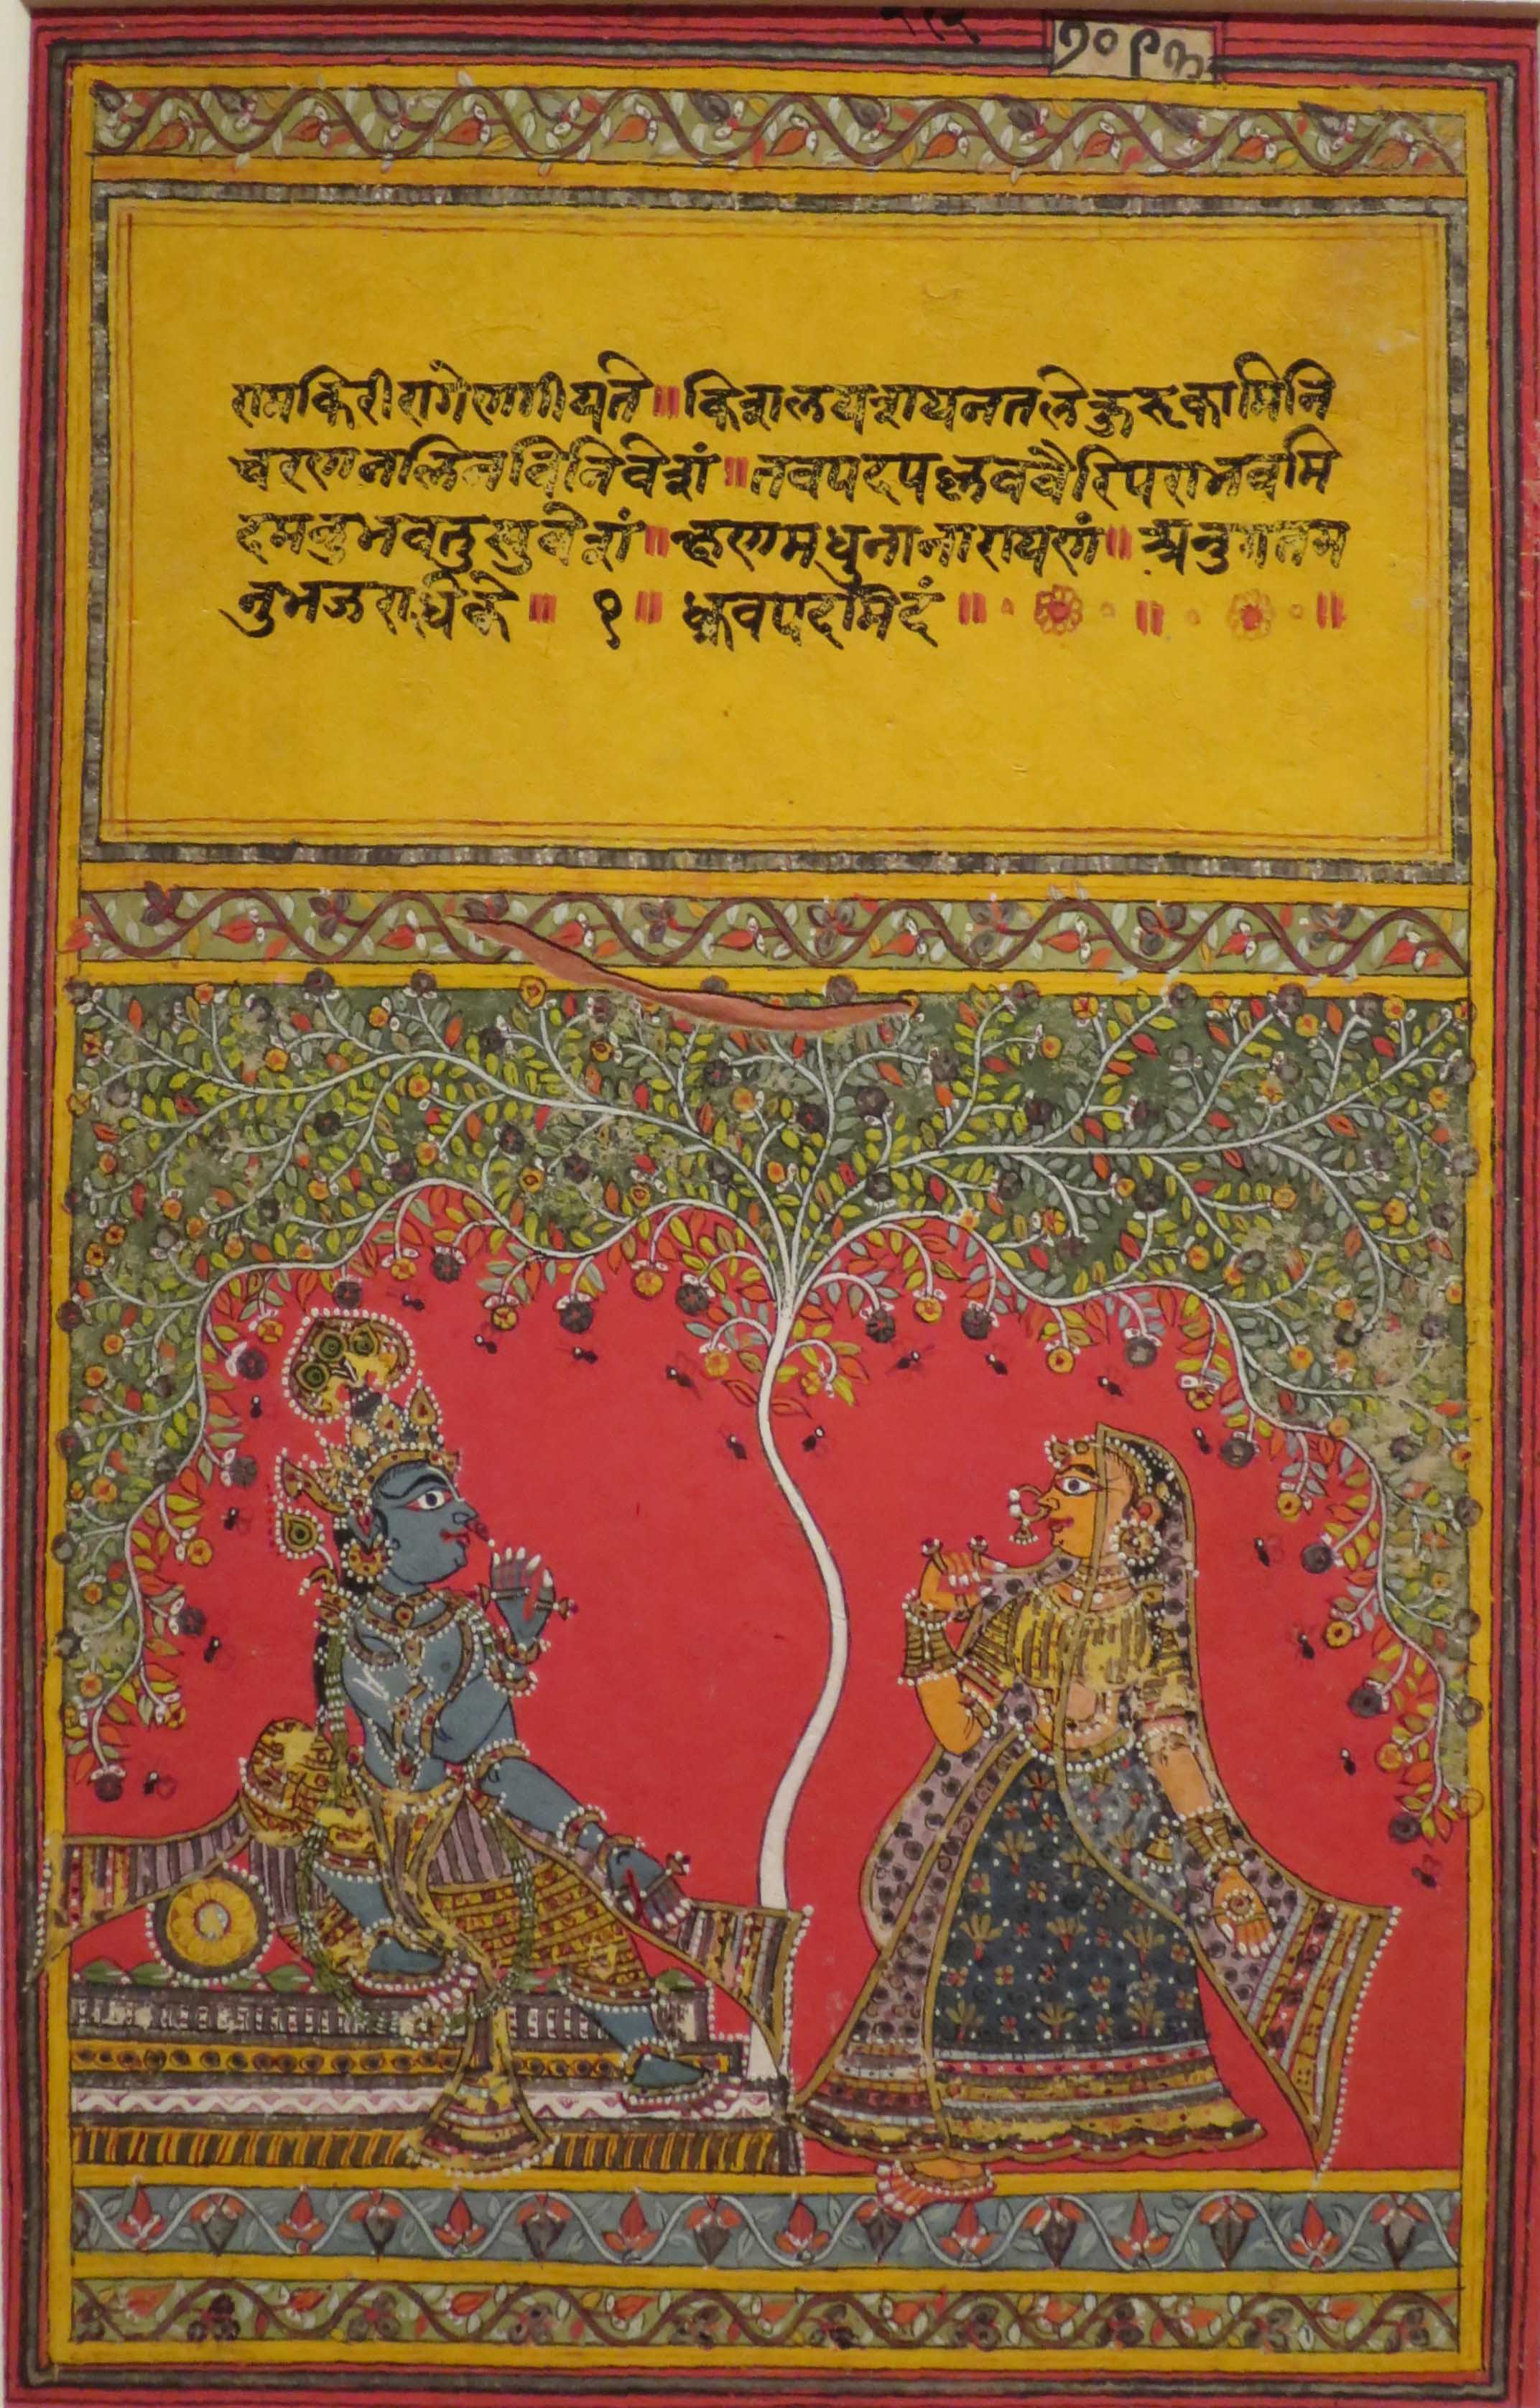 रामकिरीरागेणगीयते ॥ किशलयशयनतलेकुरुकामिनि
चरणनलिनविनिवेशं ॥ तवपदपल्लववैरिपराभवमि
दमनुभवतुसुवेशं ॥ क्षणमधुनानारायणं ॥ अनुगतम
नुभजराधिके ॥ १ ॥ ध्रुवपदमिदं ॥ ॥ ॥